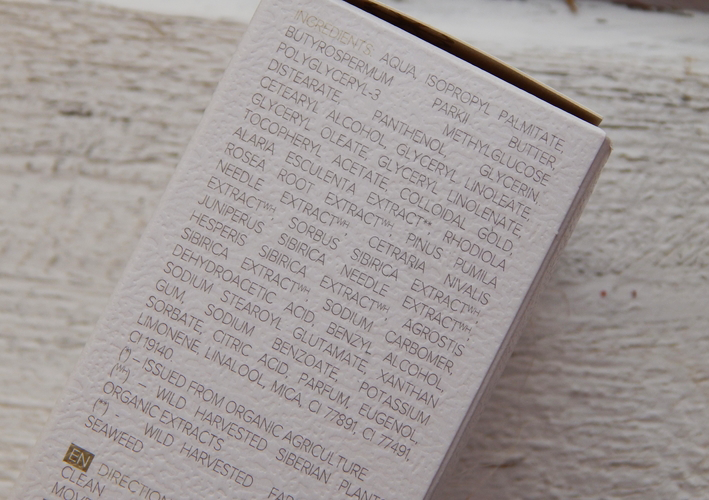 INGREDIENTS: AQUA, ISOPROPYL PALMITATE,
BUTYROSPERMUM PARKII BUTTER,
POLYGLYCERYL-3 METHYLGLUCOSE
DISTEARATE, PANTHENOL, GLYCERIN,
CETEARYL ALCOHOL, GLYCERYL LINOLEATE,
GLYCERYL OLEATE, GLYCERYL LINOLENATE,
TOCOPHERYL ACETATE, COLLOIDAL GOLD,
ALARIA ESCULENTA EXTRACT**, RHODIOLA
ROSEA ROOT EXTRACT(WH), PINUS PUMILA
NEEDLE EXTRACT(WH), CETRARIA NIVALIS
EXTRACT(WH), SORBUS SIBIRICA EXTRACT(WH),
JUNIPERUS SIBIRICA NEEDLE EXTRACT(WH),
HESPERIS SIBIRICA EXTRACT(WH), AGROSTIS
SIBIRICA EXTRACT(WH), SODIUM CARBOMER,
DEHYDROACETIC ACID, BENZYL ALCOHOL,
SODIUM STEAROYL GLUTAMATE, XANTHAN
GUM, SODIUM BENZOATE, POTASSIUM
SORBATE, CITRIC ACID, PARFUM, EUGENOL,
LIMONENE, LINALOOL, MICA, CI 77891, CI 77491,
CI 19140
(*) – ISSUED FROM ORGANIC AGRICULTURE
(WH) – WILD HARVESTED SIBERIAN PLANT
ORGANIC EXTRACTS
(**) - WILD HARVESTED
SEAWEED
EN DIRECTION
CLEAN